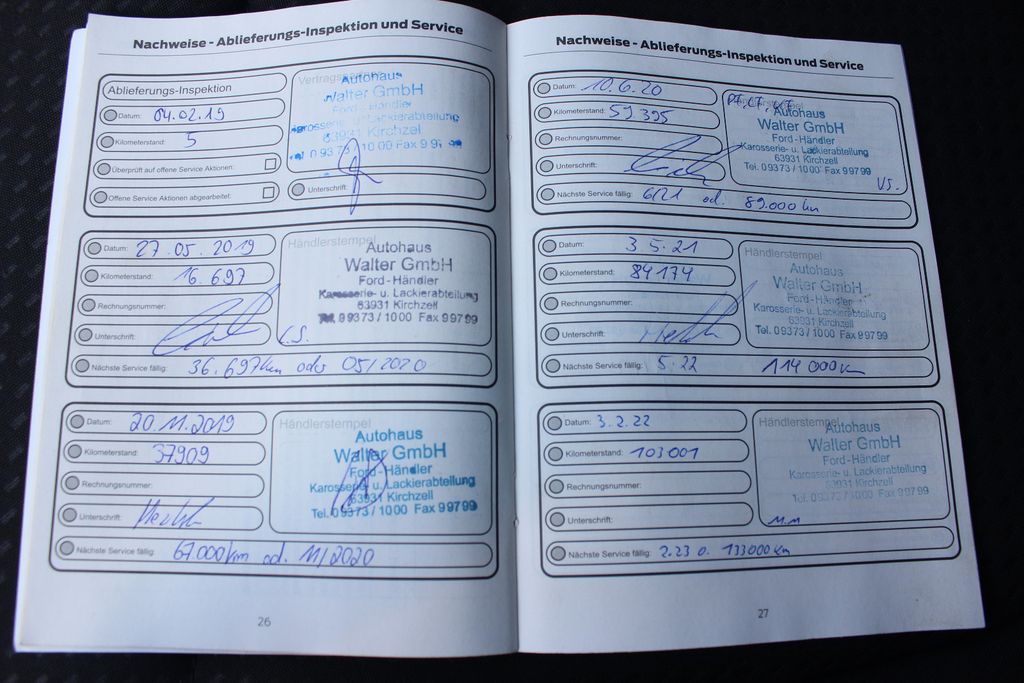 Nachweise - Ablieferungs-Inspektion und Service
Ablieferungs-Inspektion
Datum: 04.02.19
Kilometerstand: 5
Überprüft auf offene Service Aktionen:
Offene Service Aktionen abgearbeitet:
Autohaus
Walter GmbH
Ford-Händler
Karosserie- u. Lackierabteilung
63931 Kirchzell
Unterschrift:
Datum: 27.05.2019
Kilometerstand: 16.697
Rechnungsnummer:
Unterschrift:
Nächste Service fällig: 36.697km oder 05/2020
Händlerstempel
Autohaus
Walter GmbH
Ford-Händler
Karosserie- u. Lackierabteilung
63931 Kirchzell
Tel. 09373/1000 Fax 99799
Datum: 20.11.2019
Kilometerstand: 37909
Rechnungsnummer:
Unterschrift:
Nächste Service fällig: 67.000km od. 11/2020
Händlerstempel
Autohaus
Walter GmbH
Ford-Händler
Karosserie- u. Lackierabteilung
63931 Kirchzell
Tel. 09373/1000 Fax 99799
26
Nachweise - Ablieferungs-Inspektion und Service
Datum: 10.6.20
Kilometerstand: 59395
Rechnungsnummer:
Unterschrift:
Nächste Service fällig: 6/21 od. 89.000 km
Händlerstempel
Autohaus
Walter GmbH
Ford-Händler
Karosserie- u. Lackierabteilung
63931 Kirchzell
Tel. 09373/1000 Fax 99799
Datum: 3.5.21
Kilometerstand: 84174
Rechnungsnummer:
Unterschrift:
Nächste Service fällig: 5.22 114000km
Händlerstempel
Autohaus
Walter GmbH
Ford-Händler
Karosserie- u. Lackierabteilung
63931 Kirchzell
Tel. 09373/1000 Fax 99799
Datum: 3.2.22
Kilometerstand: 103001
Rechnungsnummer:
Unterschrift:
Nächste Service fällig: 2.23 o. 133000km
Händlerstempel
Autohaus
Walter GmbH
Ford-Händler
Karosserie- u. Lackierabteilung
63931 Kirchzell
Tel. 09373/1000 Fax 99799
M.M
27